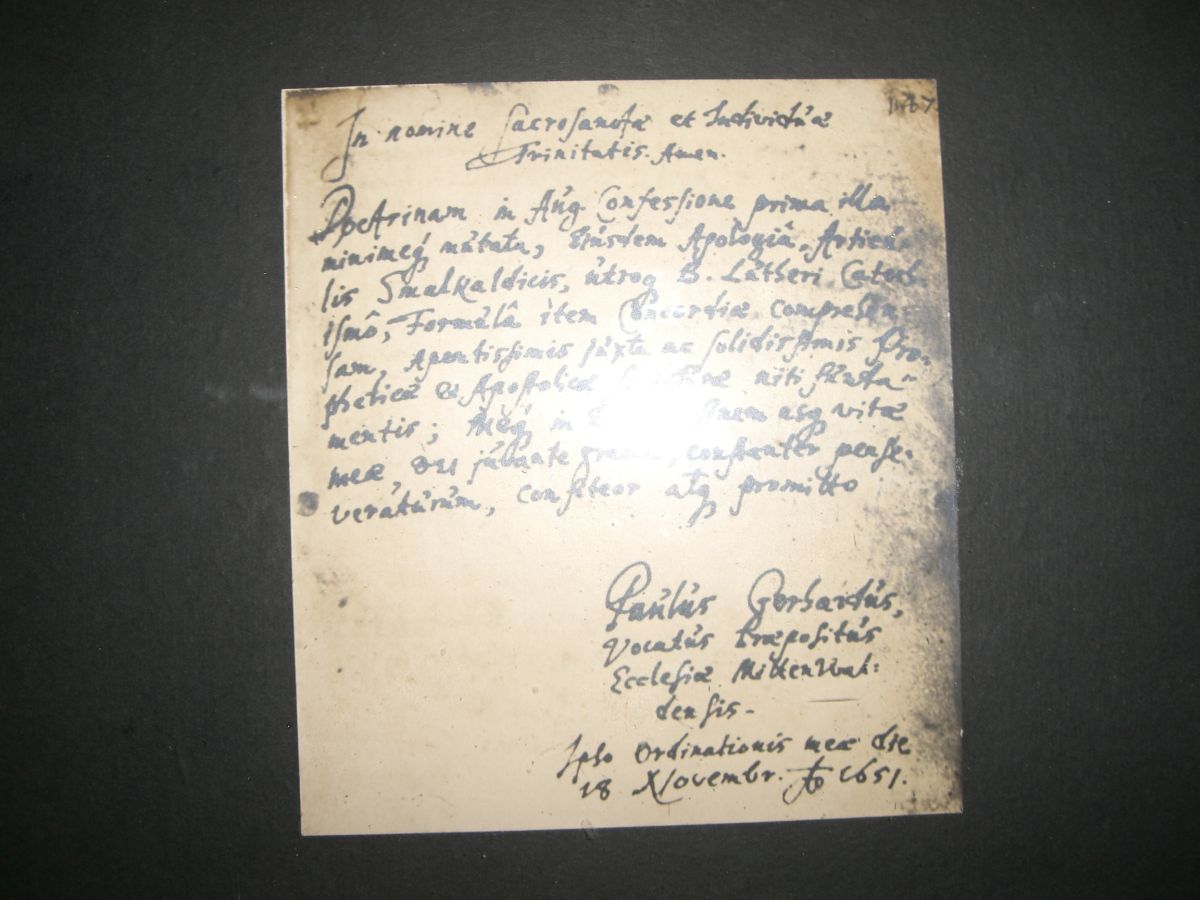 In nomine Sacrosanctæ et Individuæ
Trinitatis. Amen.
Doctrinam in Aug. Confessione prima illa
minimeq; mutata, Ejusdem Apologiâ, Articu-
lis Smalkaldicis, utroq B. Lutheri Catech-
ismô, Formulâ item Concordiæ comprehen-
sam, apertissimis juxta ac solidissimis Pro-
pheticæ & Apostolicæ niti funda-
mentis; Meq; in finem usq vitæ
meæ DEI juvante gratia, constanter perse-
veraturum, confiteor atq promitto
Paulus Gerhardus,
Vocatus Præpositus
Ecclesiæ Mittenwal-
densis.
Ipso Ordinationis meæ die
18 Novembr. Ao 1651.